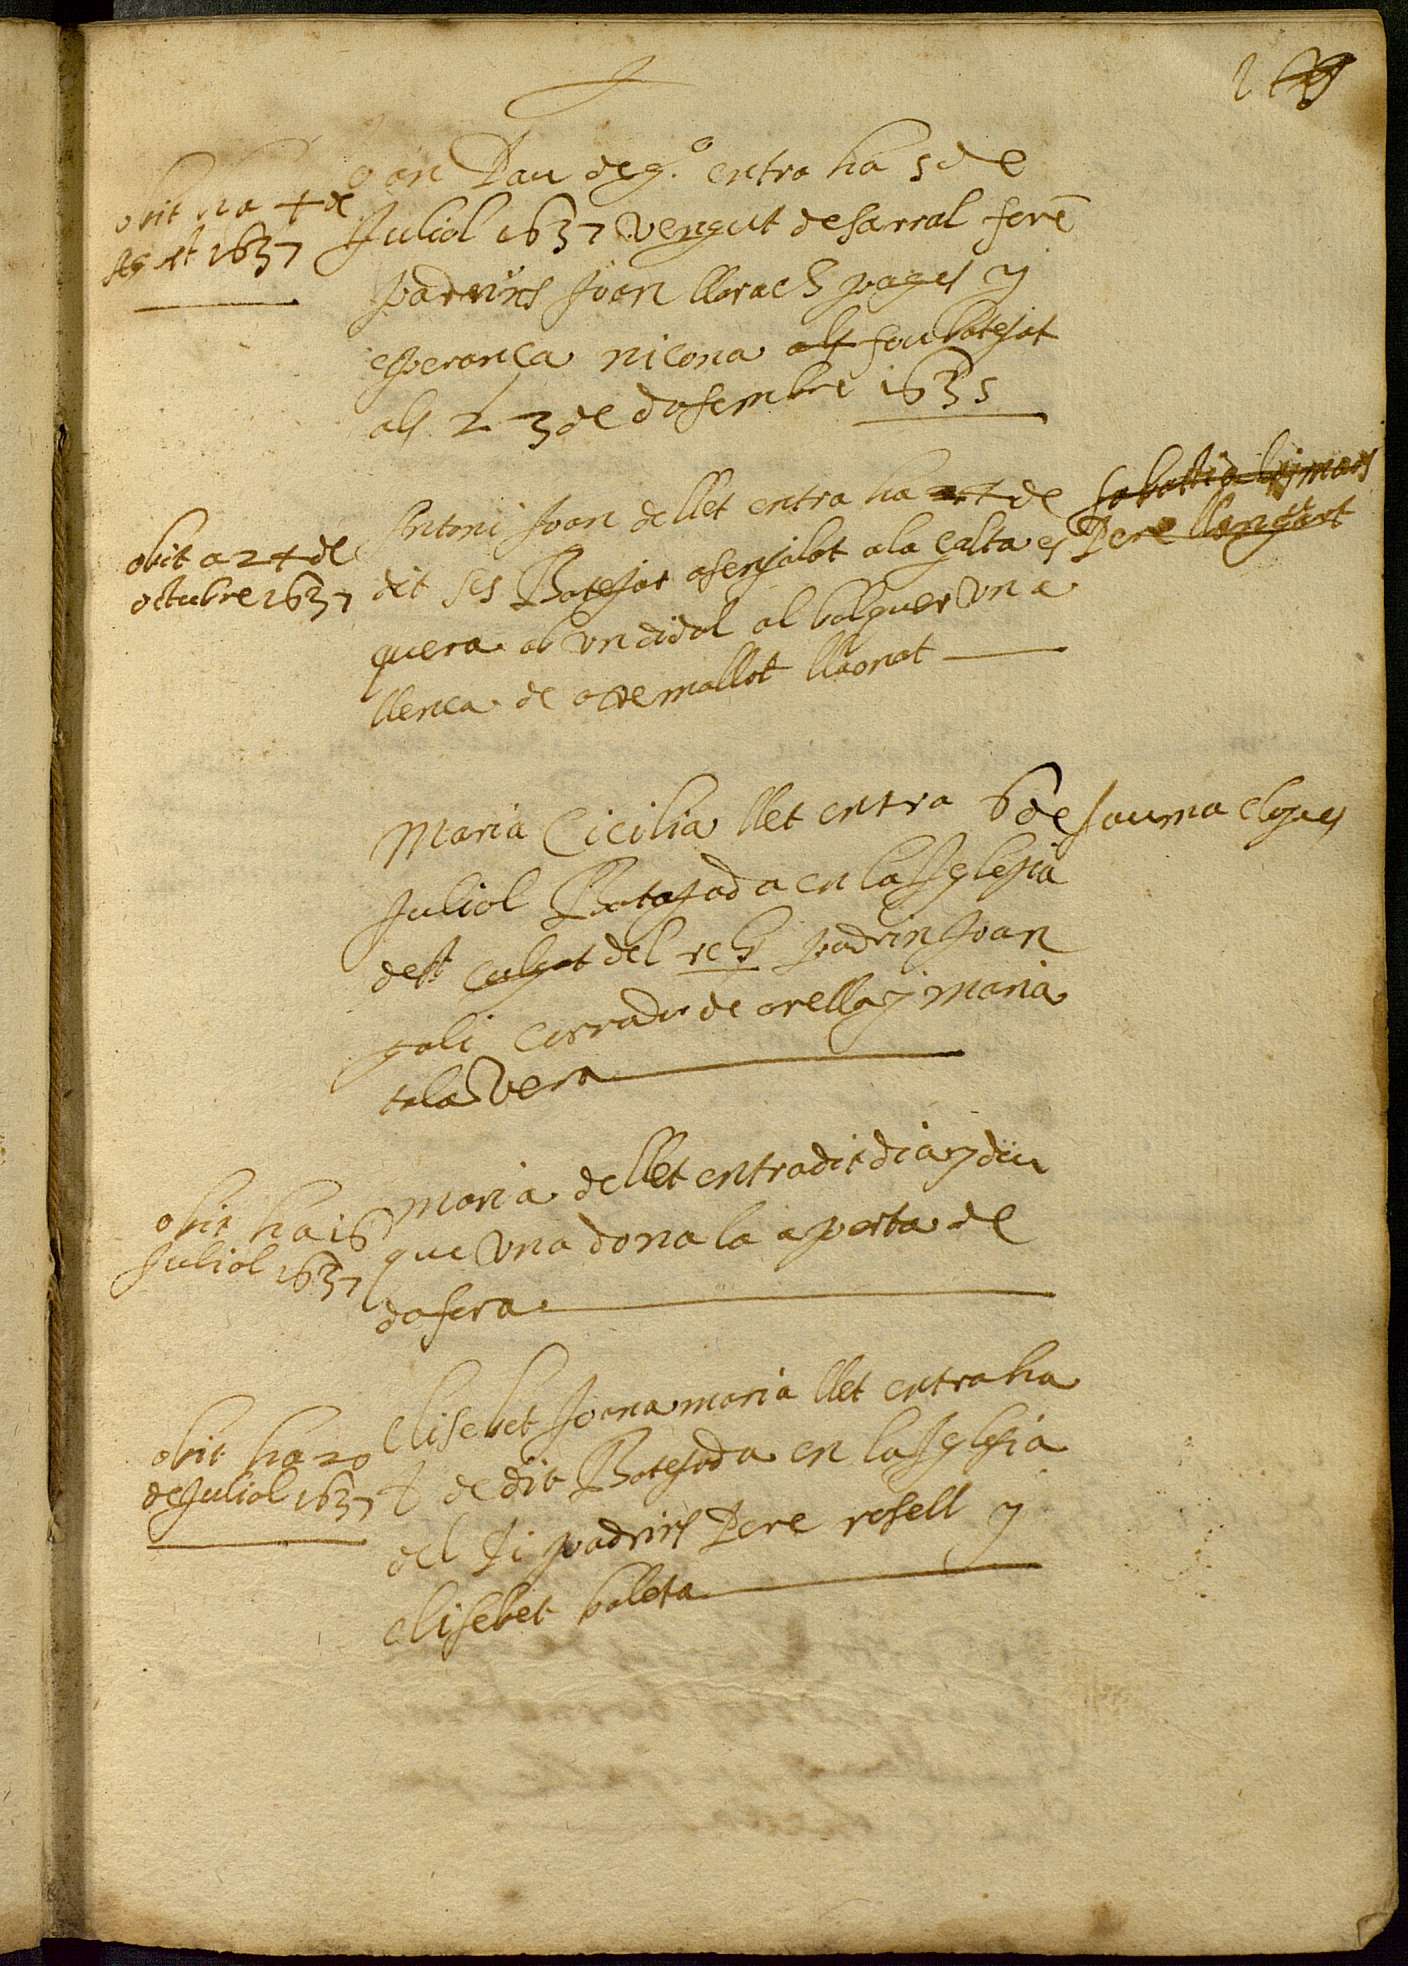 obit ha 4 de
1637
Joan Pau de g.º entra ha 5 de
Juliol 1637 vengut de sarral forē
padrins Joan llorach pages y
esperanca nicona als fou batejat
als 23 de dasembre 1635
obit a 24 de
octubre 1637
Antoni Joan de llet entra ha 4 de
dit ses Batejat asenjalat a la galta es
quera ab un didal al bolquer una
llenca de
Pere
Maria Cicilia llet entra 6 de
Juliol Batejada en la Iglesia
de st culgat del rech padrin Joan
gali corrador de orella y maria
talavera
Jauma
obit ha 16
Juliol 1637
maria de llet entra dit dia y diu
que una dona la aporta de
dosera
obit ha 20
de Juliol 1637
elisebet Joana maria llet entra ha
de dit Batejada en la Iglesia
del Pi padrins Pere rosell y
elisebet baleta